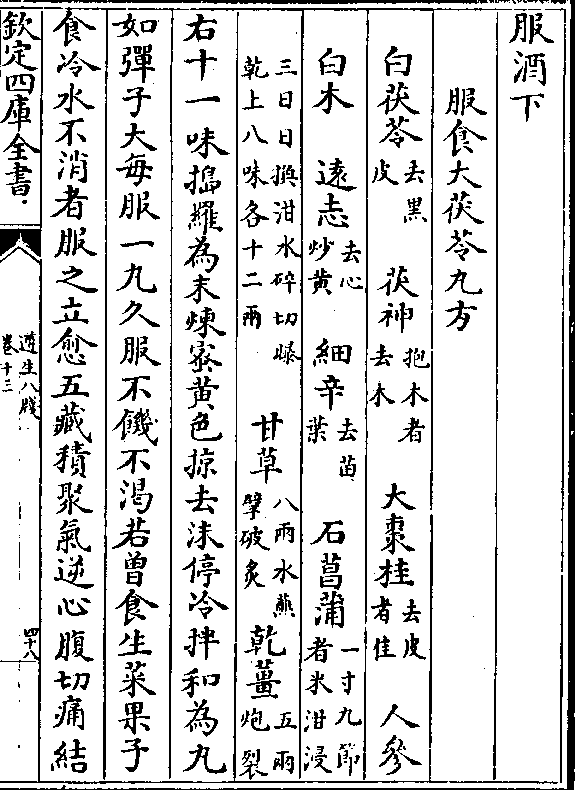 服酒下
服食大茯苓丸方
白茯苓去黑皮 茯神抱木者去木 大棗桂去皮者佳 人參
白木 遠志去心炒黄 細辛去苗葉 石菖蒲一寸九節者米泔浸
三日日換泔水碎切曝乾上八味各十二兩 甘草八兩水蘸擘破炙 乾薑五兩炮裂
右十一味搗羅為末煉蜜黄色掠去沫停冷拌和為丸
如彈子大每服一丸久服不饑不渴若曾食生菜果子
食冷水不消者服之立愈五藏積聚氣逆心腹切痛結
欽定四庫全書
遵生八牋
卷十三
四十八